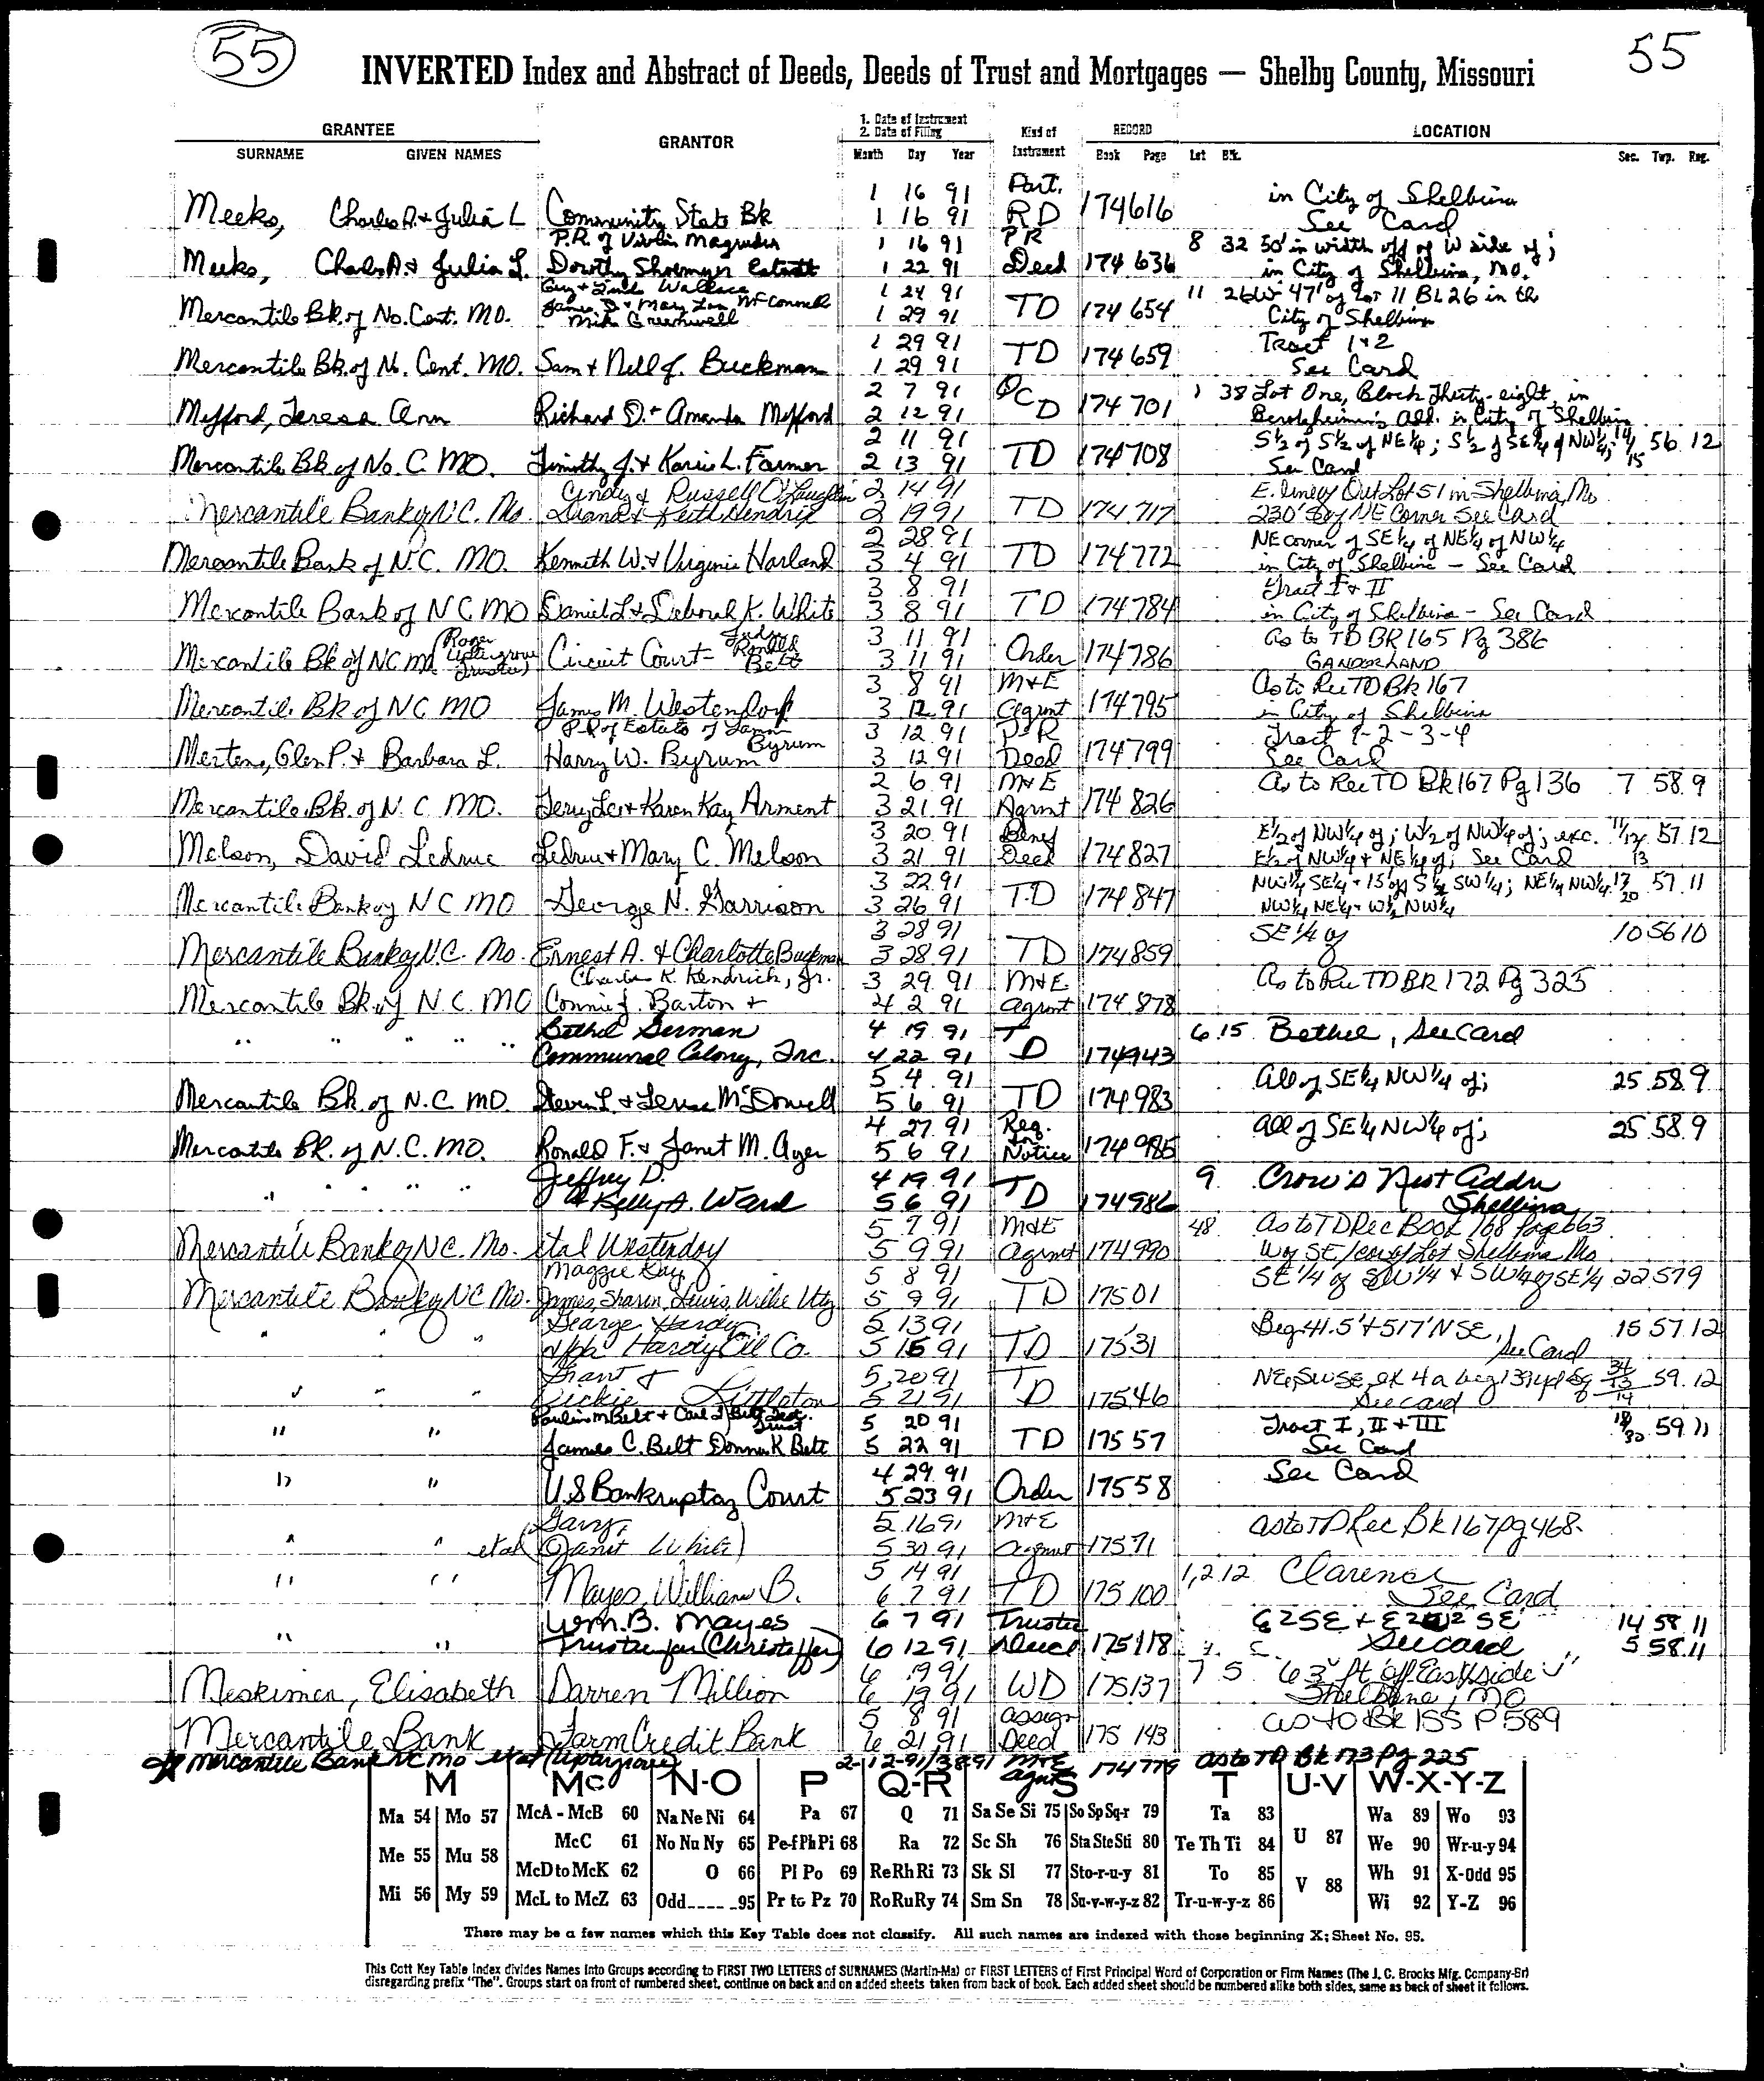 55
55
INVERTED Index and Abstract of Deeds, Deeds of Trust and Mortgages — Shelby County, Missouri
GRANTEE GRANTOR 1. Date of Instrument 2. Date of Filing Kind of Instrument RECORD LOCATION
SURNAME GIVEN NAMES Month Day Year Book Page Lot Blk. Sec. Twp. Rng.
1 16 91 Part. in City of Shelbina
Meeks, Charles A. & Julia L Community State Bk 1 16 91 RD 174 616 See Card
P.R. of Violin Magruder 1 16 91 PR 8 32 50' in width off of W side of;
Meeks, Charles A & Julia L. Dorothy Shoemyer Estate 1 22 91 Deed 174 636 in City of Shelbina, MO.
Guy & Linda Wallace 1 24 91 11 26 W 47' of Lot 11 BL 26 in the
James D & Mary Lou McConnell
Mercantile Bk. of No. Cent. MO. Mike Greenwell 1 29 91 TD 174 654 City of Shelbina
1 29 91 Tract 1 & 2
Mercantile Bk. of No. Cent. MO. Sam & Nell J. Buckman 1 29 91 TD 174 659 See Card
2 7 91 1 38 Lot One, Block Thirty-eight, in
Mefford, Teresa Ann Richard D. & Amanda Mefford 2 12 91 QCD 174 701 Add. in City of Shelbina
2 11 91 S½ of S½ of NE¼; S½ of SE¼ of NW¼; 14/15 56 12
Mercantile Bk of No. C. MO. Timothy J. & Karie L. Farmer 2 13 91 TD 174 708 See Card
Cindy & Russell O'Laughlin 2 14 91 E. line of Out Lot 51 in Shelbina Mo
Mercantile Bank of N.C. Mo. Diana & Keith Hendrix 2 19 91 TD 174 717 230' S of NE Corner See Card
2 28 91 NE corner of SE¼ of NE¼ of NW¼
Mercantile Bank of N.C. MO. Kenneth W. & Virginia Harland 3 4 91 TD 174 772 in City of Shelbina - See Card
3 8 91 Tract I & II
Mercantile Bank of N C MO Daniel L & Deborah K. White 3 8 91 TD 174 784 in City of Shelbina - See Card
Roger Uptergrove Trustee Judy Ronald Belt 3 11 91 As to TD BR 165 Pg 386
Mercantile Bk of NC MO Circuit Court- 3 11 91 Order 174 786 GANDERLAND
3 8 91 M&E As to Rec TD Bk 167
Mercantile Bk of NC MO James M. Westendorf 3 12 91 Agrmt 174 795 in City of Shelbina
P R of Estate of Byrum 3 12 91 PR Tract 1-2-3-4
Mertens, Glen P. & Barbara L. Harry W. Byrum 3 12 91 Deed 174 799 See Card
2 6 91 M&E As to Rec TD Bk 167 Pg 136 7 58 9
Mercantile Bk. of N. C. MO. Terry Lee & Karen Kay Arment 3 21 91 Agrmt 174 826
3 20 91 Benef E½ of NW¼ of; W½ of NW¼ of; exc. 11/12 57 12
Melson, David Ledrue Ledrue & Mary C. Melson 3 21 91 Deed 174 827 E½ of NW¼ & NE¼ of; See Card 13
3 22 91 NW¼ SE¼ + 15 of S½ SW¼; NE¼ NW¼ 17/20 57 11
Mercantile Bank of N C MO George N. Garrison 3 26 91 T.D 174 847 NW¼ NE¼ + W½ NW¼
3 28 91 SE ¼ of 10 56 10
Mercantile Bank of N.C. Mo. Ernest A. & Charlotte Buckman 3 28 91 TD 174 859
Charles K. Kendrick, Jr. 3 29 91 M&E As to Rec TD BR 172 Pg 325
Mercantile Bk. of N.C. MO Connie J. Barton & 4 2 91 Agrmt 174 878
Bethel German 4 19 91 6 15 Bethel, See Card
" " " " " Communal Colony, Inc. 4 22 91 TD 174 943
5 4 91 All of SE¼ NW¼ of; 25 58 9
Mercantile Bk. of N.C. MO. Steven L. & Teresa McDowell 5 6 91 TD 174 983
4 27 91 Req. for All of SE¼ NW¼ of; 25 58 9
Mercantile Bk. of N.C. MO. Ronald F. & Janet M. Ayer 5 6 91 Notice 174 985
Jeffrey D. 4 19 91 9 Crow's Nest Addn
" " " " " & Kelly A. Ward 5 6 91 TD 174 986 Shelbina
5 7 91 M&E 48 As to TD Rec Book 168 Page 663
Mercantile Bank of N C. Mo. etal Westendorf 5 9 91 Agrmt 174 990 W of SE/cor of Lot Shelbina Mo
Maggie Kay 5 8 91 SE ¼ of SW ¼ & SW¼ of SE ¼ 22 57 9
Mercantile Bank of NC Mo. James, Sharon, Lewis, Willie Utz 5 9 91 TD 175 01
George Hardy 5 13 91 Beg 41.5' & 517' N SE, 15 57 12
" " " Hardy Oil Co. 5 15 91 TD 175 31 See Card
Grant & 5 20 91 NE, SW SE, ex 4 a beg 139 yd 59 12
" " " Dickie Littleton 5 21 91 TD 175 46 See card
Pauline M Belt & Carl J Belt Trust 5 20 91 Tract I, II & III 59 11
" " James C. Belt Donna K Belt 5 22 91 TD 175 57 See Card
4 29 91 See Card
" " U.S Bankruptcy Court 5 23 91 Order 175 58
Gary, 5 16 91 M&E As to TD Rec Bk 167 pg 468.
" " etal (Janet White) 5 30 91 Agrmt 175 71
5 14 91 1,2 12 Clarence
" " Mayes, William B. 6 7 91 TD 175 100 See Card
Wm. B. Mayes 6 7 91 Trustee 14 58 11
" " Trustee for (Christoffer) 6 12 91 Deed 175 118 See card 5 58 11
6 19 91 7 5 63 ft off East side
Meskimen, Elisabeth Darren Million 6 19 91 WD 175 137 Shelbina, MO
5 8 91 Assign As to Bk 155 P 589
Mercantile Bank Farm Credit Bank 6 21 91 Deed 175 143
Mercantile Bank NC MO etal (Uptergrove) 2-12-91/3 8 91 M&E Agmt 174 779 As to TD Bk 173 Pg 225
M Mc N-O P Q-R S T U-V W-X-Y-Z
Ma 54 Mo 57 McA - McB 60 Na Ne Ni 64 Pa 67 Q 71 Sa Se Si 75 So Sp Sq-r 79 Ta 83 Wa 89 Wo 93
Me 55 Mu 58 McC 61 No Nu Ny 65 Pe-f Ph Pi 68 Ra 72 Sc Sh 76 Sta Ste Sti 80 Te Th Ti 84 U 87 We 90 Wr-u-y 94
McD to McK 62 O 66 Pl Po 69 Re Rh Ri 73 Sk Sl 77 Sto-r-u-y 81 To 85 V 88 Wh 91 X-Odd 95
Mi 56 My 59 McL to McZ 63 Odd_____95 Pr to Pz 70 Ro Ru Ry 74 Sm Sn 78 Su-v-w-y-z 82 Tr-u-w-y-z 86 Wi 92 Y-Z 96
There may be a few names which this Key Table does not classify. All such names are indexed with those beginning X; Sheet No. 95.
This Cott Key Table Index divides Names into Groups according to FIRST TWO LETTERS of SURNAMES (Martin-Ma) or FIRST LETTERS of First Principal Word of Corporation or Firm Names (The J. C. Brooks Mfg. Company-Br)
disregarding prefix "The". Groups start on front of numbered sheet, continue on back and on added sheets taken from back of book. Each added sheet should be numbered alike both sides, same as back of sheet it follows.